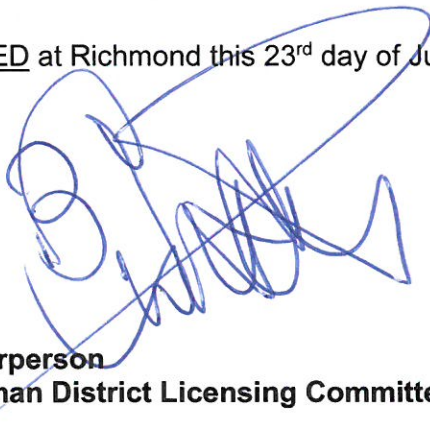 ED at Richmond this 23rd day of Ju
rperson
man District Licensing Committe